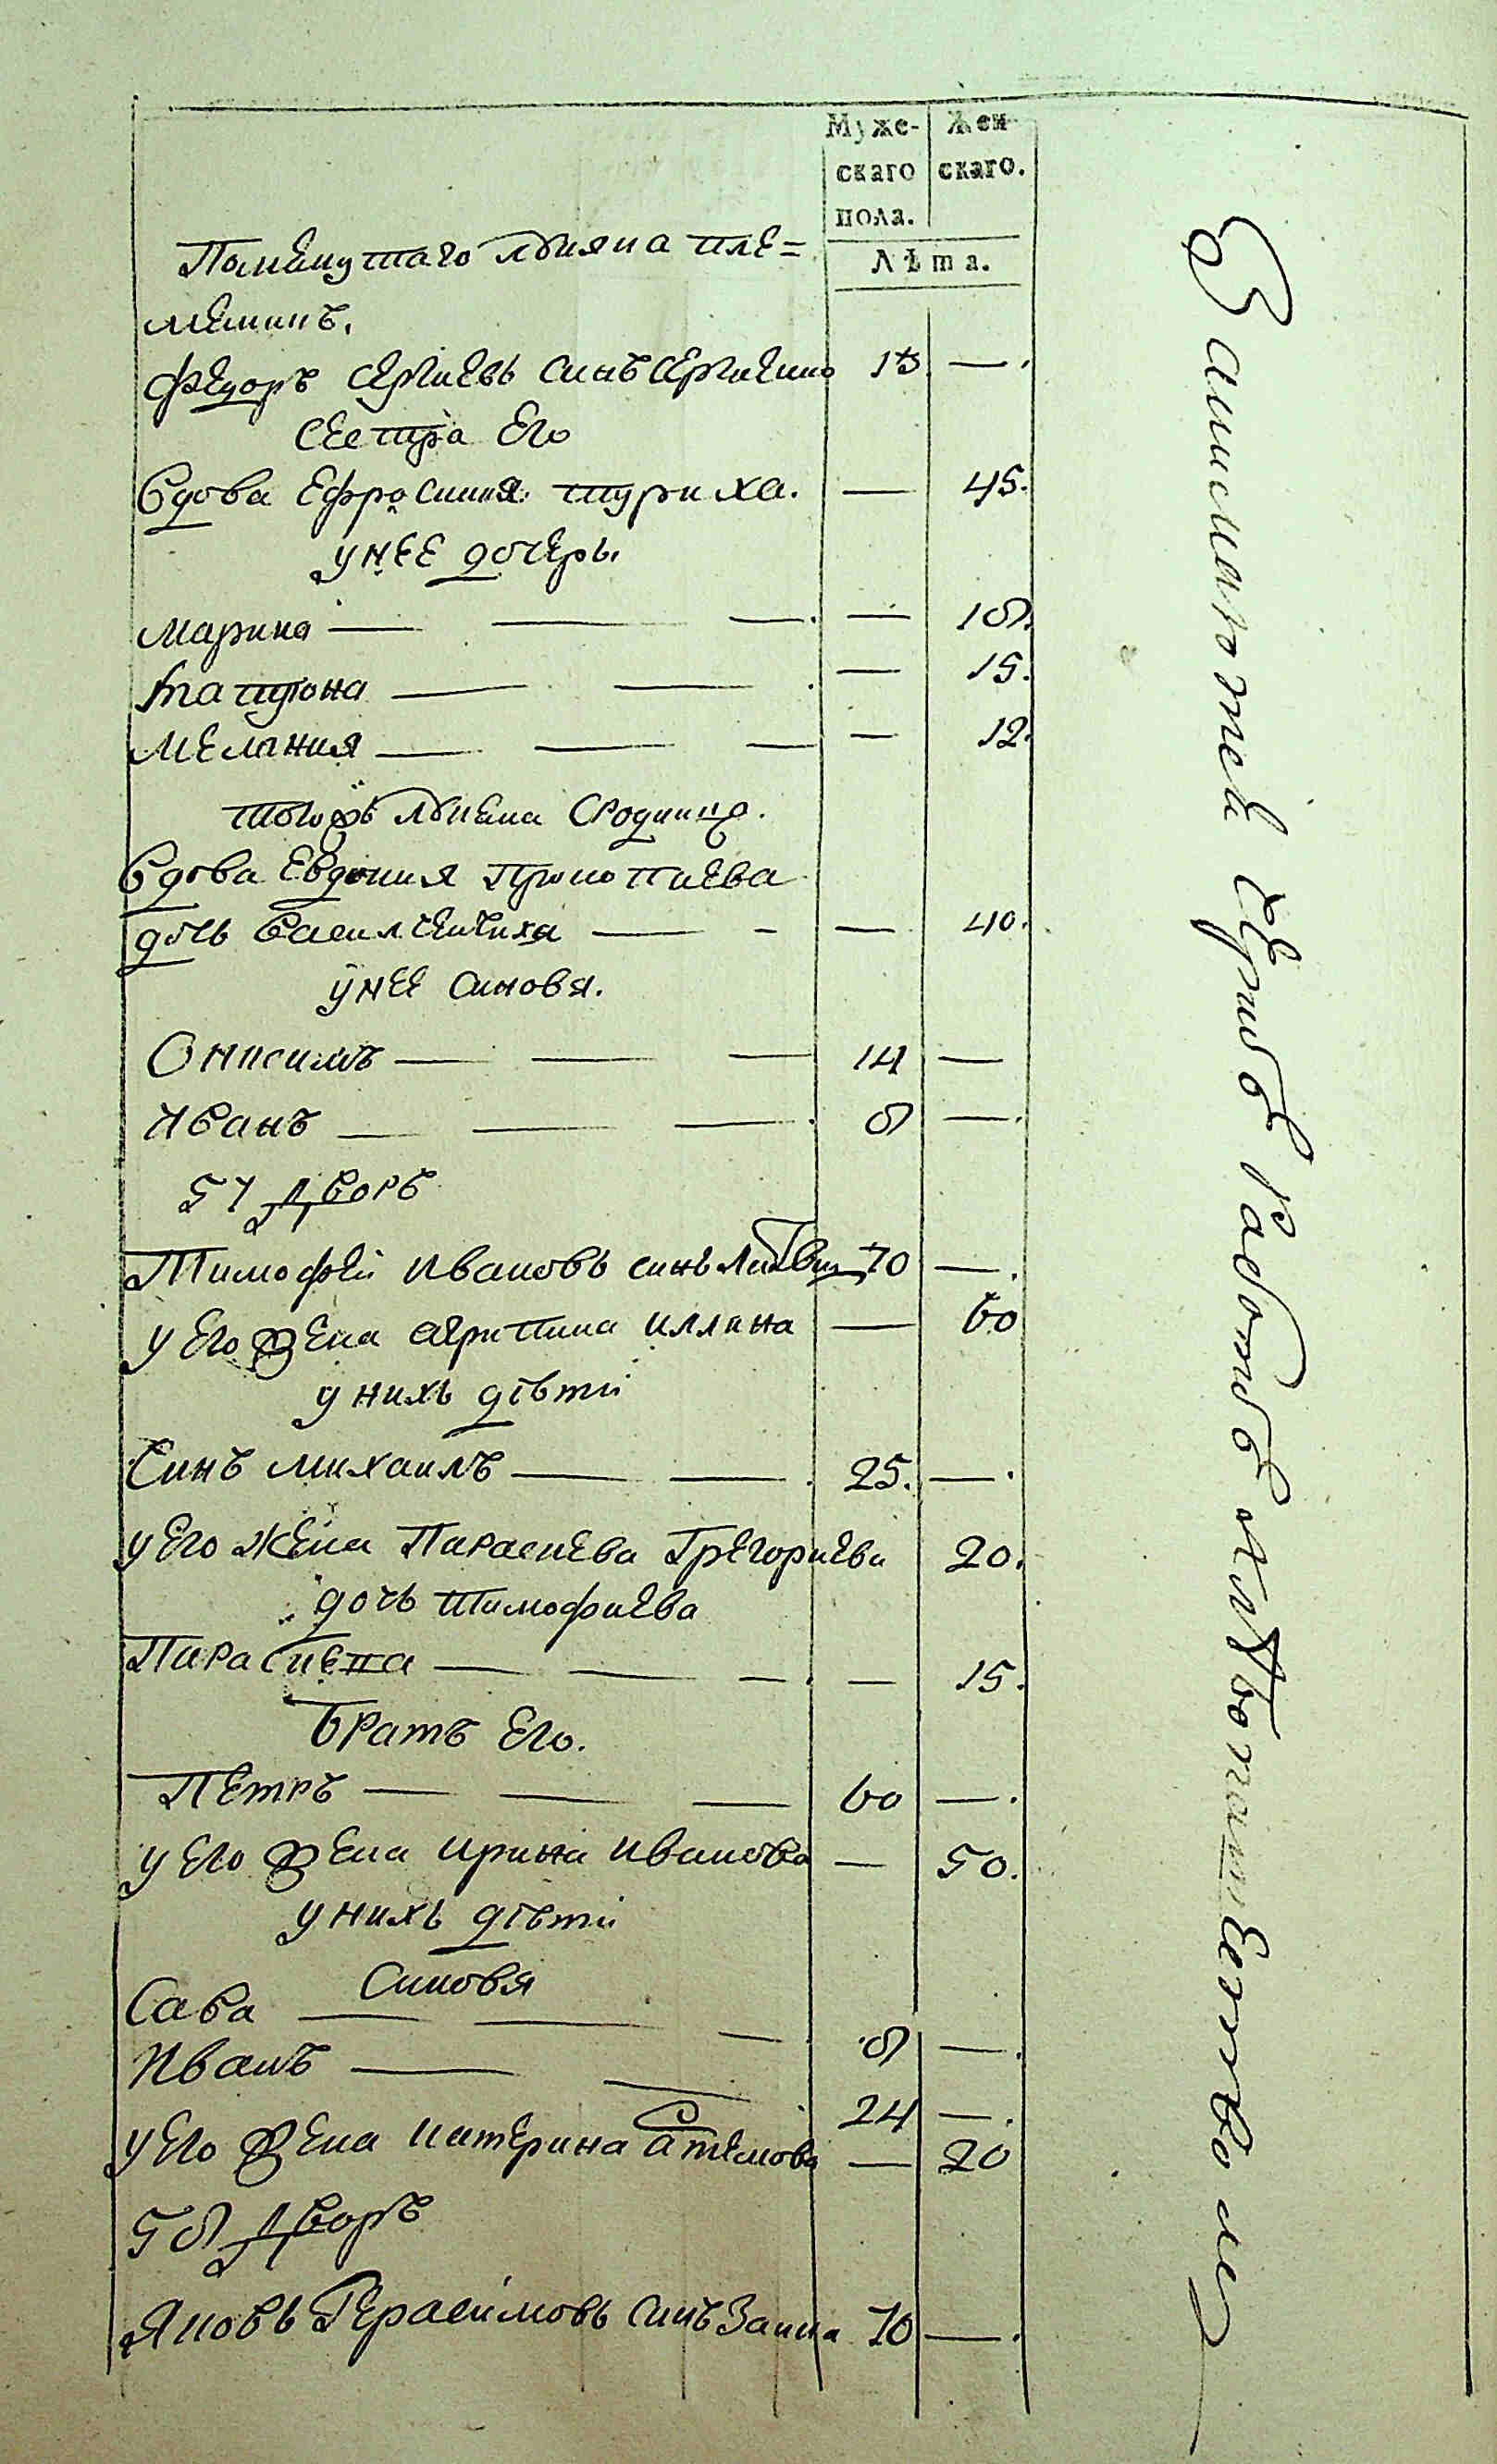 Муже-
скаго
пола.
Жен-
скаго.
Лѣта.
Помянутаго Лукяна пле=
меникъ.
Федоръ Сергиевъ синъ Сергиенко —.
Сестра Его
Вдова Ефросиния Туриха. — 45.
у неЕ дочеры
Марина — — — — 18.
— — — 15.
Мелания — — — — 12.
тогожъ сродница.
Вдова Евдокия Прокопиева
дочь Василчечиха — - — 40.
у неЕ синовя.
Онисимъ — — — 14 —
Иванъ — — — 8 —.
57 Дворъ
Тимофей Ивановъ синъ 70 —.
у Его жена Агрипина Иллина — 60
у нихъ дѣтй
Синъ Михаилъ — — 25. —.
у Его жена Параскева Грегориева 20.
дочь Тимофиева
Параскева — — — — 15.
Братъ Его.
Петръ — — — 60 —.
у Его жена Ирина Иванова — 50.
у нихъ дѣтй
Синовя
Сава — — — 8 —.
Иванъ — — 24 —.
у Его жена Катерина Артемова — 20
58 Дворъ
Яковъ Герасимовъ синъ Заика 70 —.